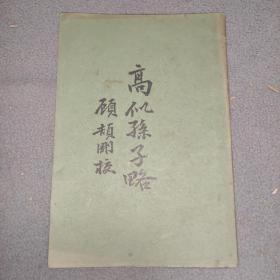 高似孫子略
顾頡剛校